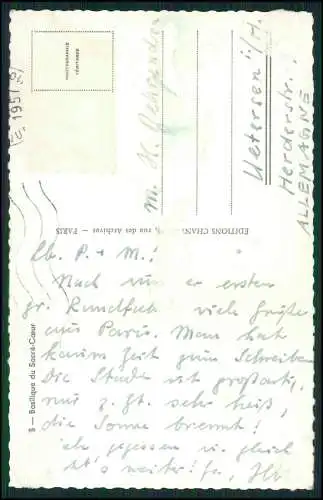 PHOTOGRAPHIE
VÉRITABLE
1957
M. H.
Uetersen i/H.
Herderstr.
ALLEMAGNE
EDITIONS CHAN rue des Archives - PARIS
5 — Basilique du Sacré-Cœur
Lb. P. + M.!
Nach unserer ersten
gr. Rundfahrt viele Grüße
aus Paris. Man hat
kaum Zeit zum Schreiben.
Die Stadt ist großartig,
nur z. Zt. sehr heiß,
die Sonne brennt!
gegessen u. gleich
geht's weiter!